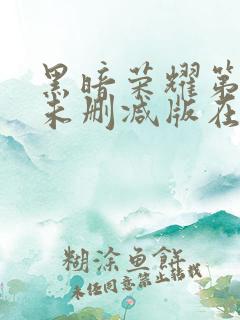 黑暗荣耀第
未删减版在
糊涂鱼饼
未经同意禁止转载